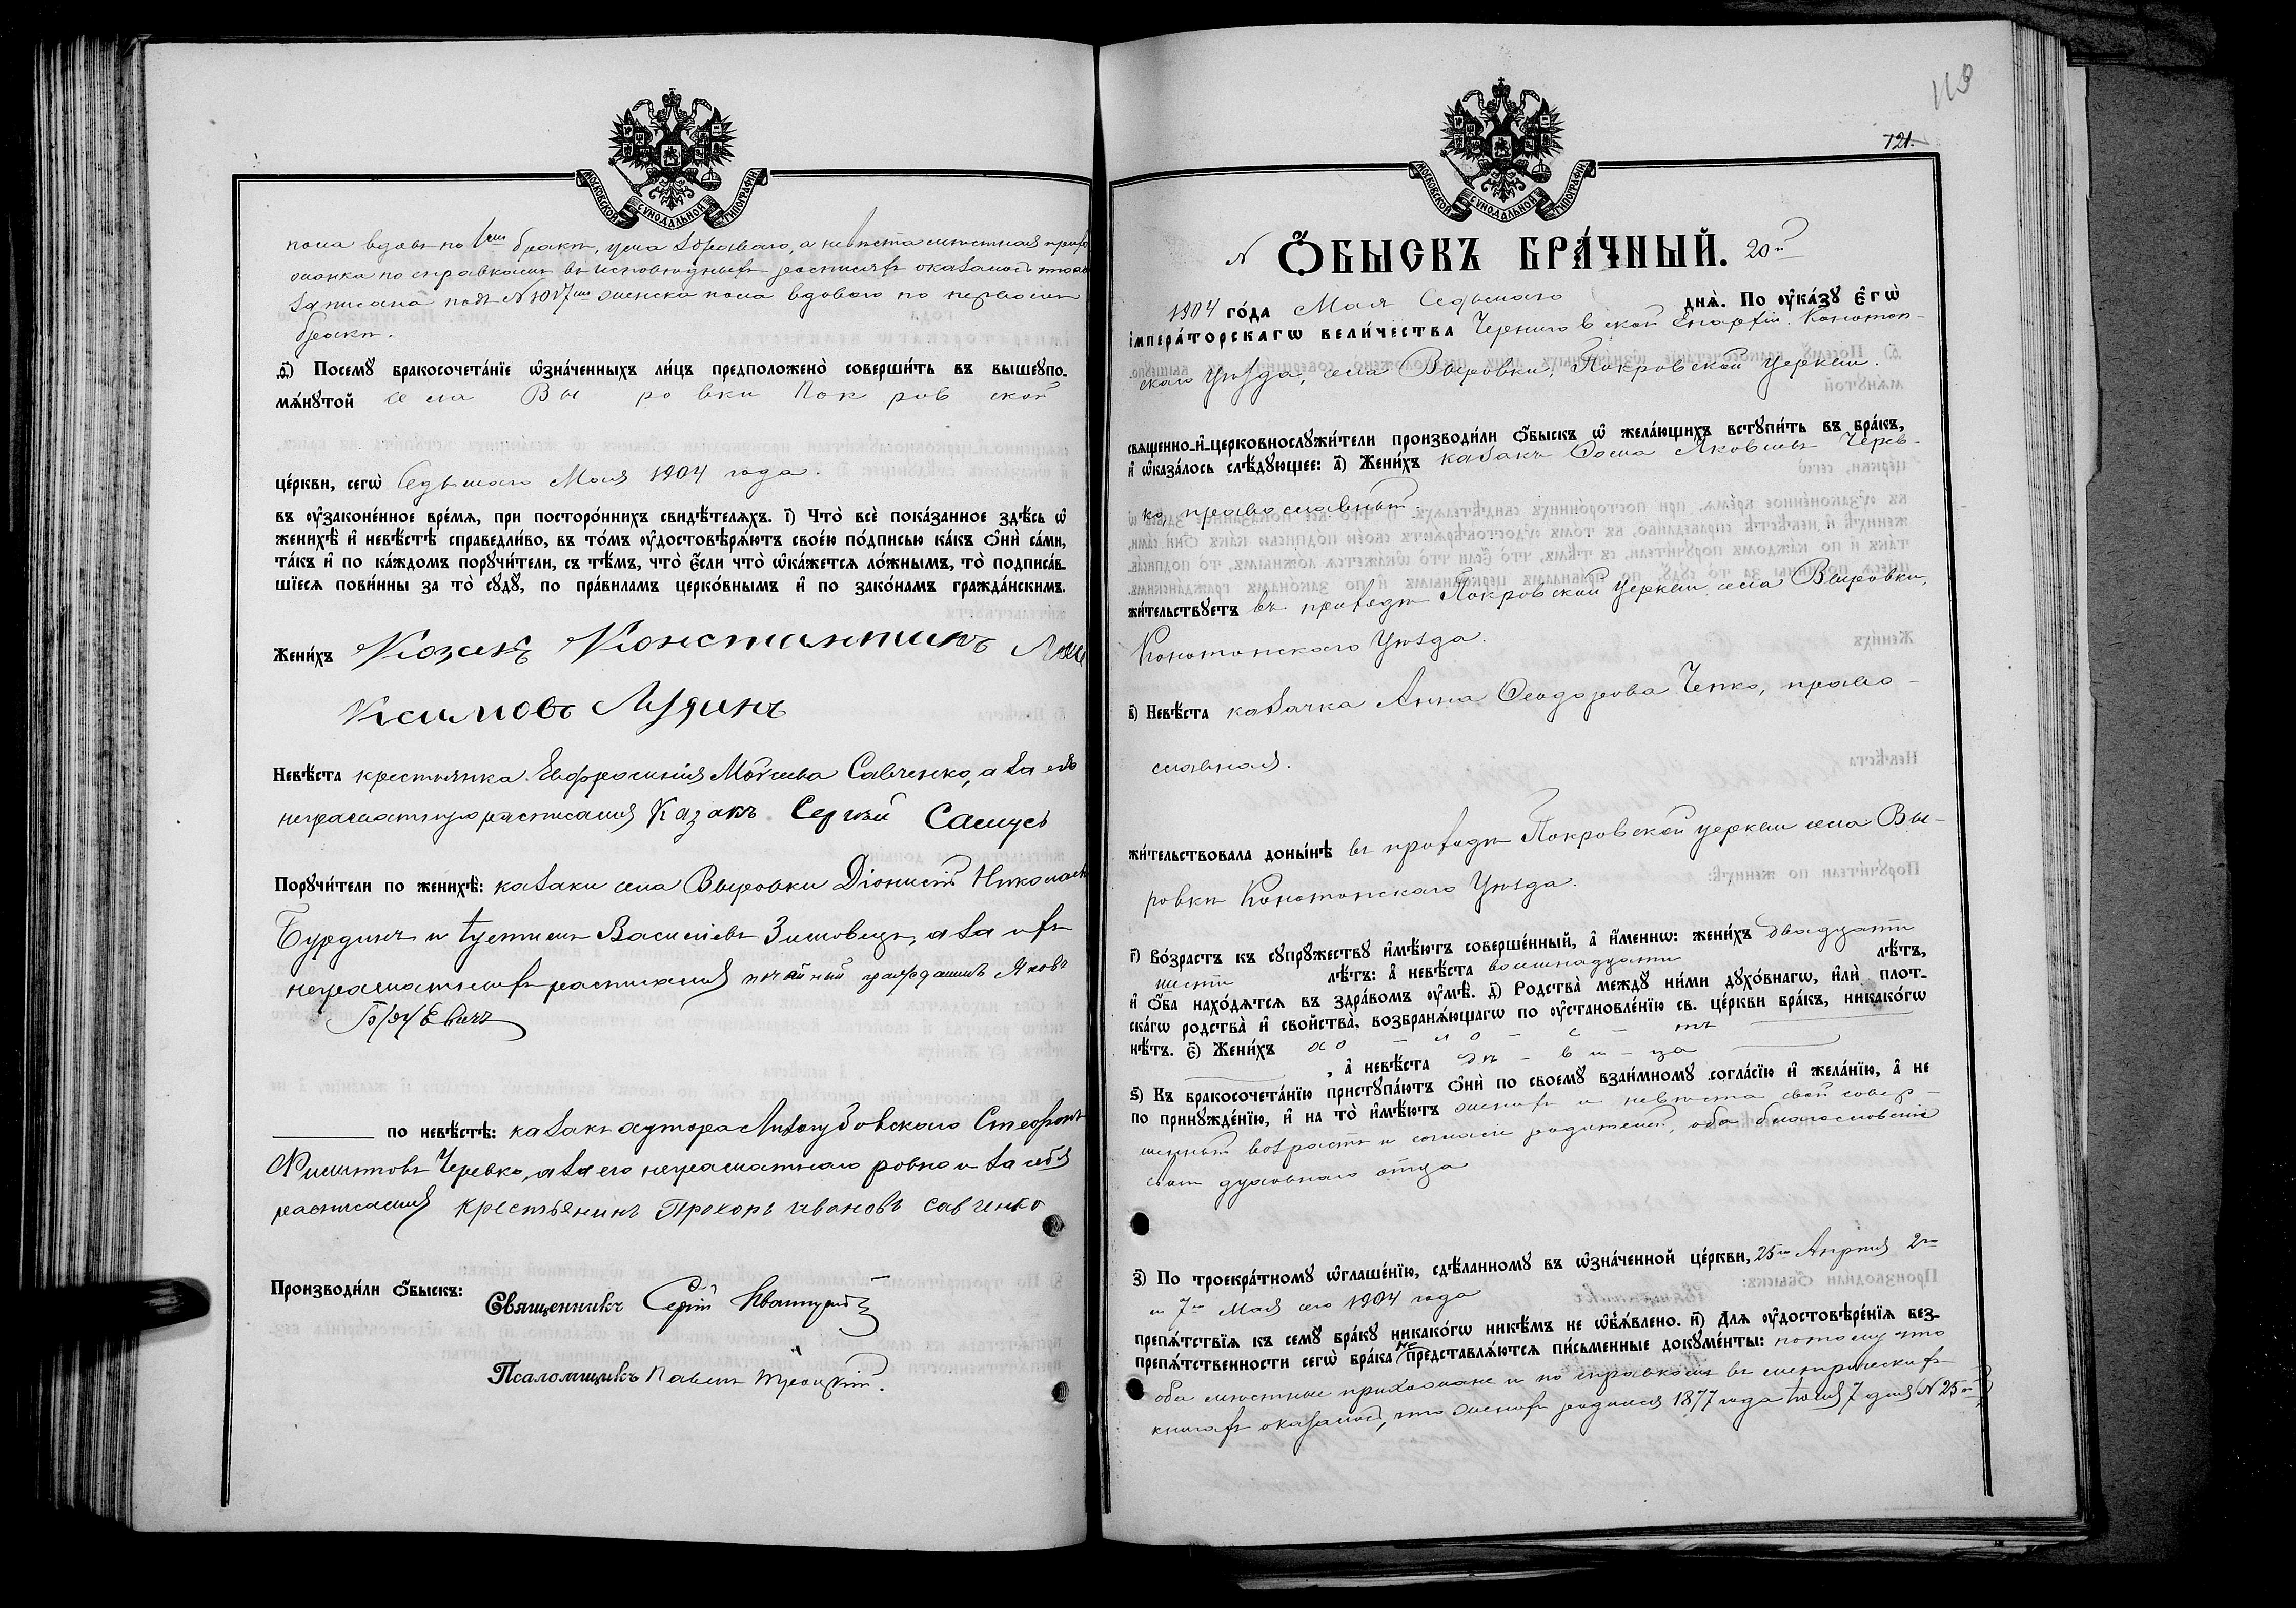 МОСКОВСКОЙ СѴНОДАЛЬНОЙ ТИПОГРАФІИ
пола вдовъ по 1му бракѣ, ума здороваго, а невѣста мѣстная прихо
жанка по справкамъ въ исповѣдныхъ росписяхъ оказалось что она
записана подъ № 1017мъ женска пола вдовою по первомъ
бракѣ.
ѳ҃) Посемꙋ бракосочета́нїе ѡ҆зна́ченныхъ ли́цъ предположено̀ соверши́ть въ вышеꙋпо-
мѧ́нꙋтой села Вы ровки Пок ров ской
це́ркви, сегѡ̀ Седьмаго Мая 1904 года.
въ ᲂу҆законе́нное вре́мѧ, при посторо́ннихъ свидѣ́телѧхъ. і҃) Что̀ всѐ пока́занное здѣ́сь ѡ҆
женихѣ̀ и҆ невѣ́стѣ справедли́во, въ то́мъ ᲂу҆достовѣрѧ́ютъ свое́ю по́дписью ка́къ ѻ҆нѝ са́ми,
та́къ и҆ по ка́ждомъ порꙋчи́тели, съ тѣ́мъ, что̀ є҆́сли что̀ ѡ҆ка́жетсѧ ло́жнымъ, то̀ подписа́в-
шїесѧ пови́нны за то̀ сꙋдꙋ̀, по пра́виламъ церко́внымъ и҆ по зако́намъ гражда́нскимъ.
Жени́хъ Козакъ Константинъ Ма
ксимовъ Лузинъ
Невѣ́ста крестьянка Евфросинія Моѵсеева Савченко, а за нея
неграмотную расписался Казакъ Сергѣй Самусь
Порꙋчи́тели по женихѣ̀: казаки села Выровки Діонисій Николаевъ
Бурдинъ и Іустинъ Василіевъ Зимовецъ, а за ихъ
неграмотныхъ расписался почетный гражданинъ Яковъ
по невѣ́стѣ: казакъ хутора Лизогубовскаго Стефанъ
Филиповъ Черевко, а за его неграмотнаго ровно и за себя
расписался крестьянинъ Прохоръ ивановъ савченко
Производи́ли ѻ҆́быскъ: Священникъ Сергій
Псаломщикъ Павелъ Троицкій.
113
121.
МОСКОВСКОЙ СѴНОДАЛЬНОЙ ТИПОГРАФІИ
№ ѺБЫСКЪ БРА́ЧНЫЙ. 20й
1904 го́да Мая Седьмаго днѧ̀. По ᲂу҆ка́зꙋ є҆гѡ̀
і҆мпера́торскагѡ вели́чества Черниговской Епархіи. Конотоп-
скаго Уѣзда, села Выровки, Покровской Церкви.
свѧщенно-и҆-церковнослꙋжи́тели производи́ли ѻ҆́быскъ ѡ҆ жела́ющихъ встꙋпи́ть въ бра́къ,
и҆ ѡ҆каза́лось слѣ́дꙋющее: а҃) Жени́хъ казакъ Ѳома Яковлевъ Черев-
ко, православный.
жи́тельствꙋетъ въ приходѣ Покровской Церкви села Выровки,
Конотопскаго Уѣзда.
в҃) Невѣ́ста казачка Анна Ѳеодорова Чепко, право-
славная.
жи́тельствовала доны́нѣ въ приходѣ Покровской церкви села Вы-
ровки Конотопскаго Уѣзда.
г҃) Во́зрастъ къ сꙋпрꙋжествꙋ и҆мѣ́ютъ соверше́нный, а҆ и҆́меннѡ: жени́хъ двадцати
шести лѣ́тъ: а҆ невѣ́ста восемнадцати лѣ́тъ,
и҆ ѻ҆́ба нахо́дѧтсѧ въ здра́вомъ ᲂу҆мѣ̀. д҃) Родства̀ междꙋ ни́ми дꙋхо́внагѡ, и҆лѝ плот-
ска́гѡ родства̀ и҆ свойства̀, возбранѧ́ющагѡ по ᲂу҆становле́нїю св. це́ркви бра́къ, никако́гѡ
нѣ́тъ. є҃) Жени́хъ хо - ло - с - тъ
, а҆ невѣ́ста дѣ - ви - ца
ѕ҃) Къ бракосочета́нїю пристꙋпа́ютъ ѻ҆нѝ по своемꙋ̀ взаи́мномꙋ согла́сїю и҆ жела́нїю, а҆ не
по принꙋжде́нїю, и҆ на то̀ и҆мѣ́ютъ женихъ и невѣста свой совер-
шенный возрастъ и согласіе родителей, оба благословеніе
своего духовнаго отца
з҃) По троекра́тномꙋ ѡ҆глаше́нїю, сдѣ́ланномꙋ въ ѡ҆зна́ченной це́ркви, 25го Апрѣля 2го
и 7го Мая сего 1904 года
препѧ́тствїѧ къ семꙋ̀ бра́кꙋ никако́гѡ никѣ́мъ не ѡ҆б̾ѧ́влено. и҃) Длѧ ᲂу҆достовѣре́нїѧ без-
препѧ́тственности сегѡ̀ бра́ка не представлѧ́ютсѧ пи́сьменные докꙋме́нты: потому что
оба мѣстные прихожане и по справкамъ въ метрическихъ
книгахъ оказалось, что женихъ родился 1877 года Іюля 7 дня № 25й